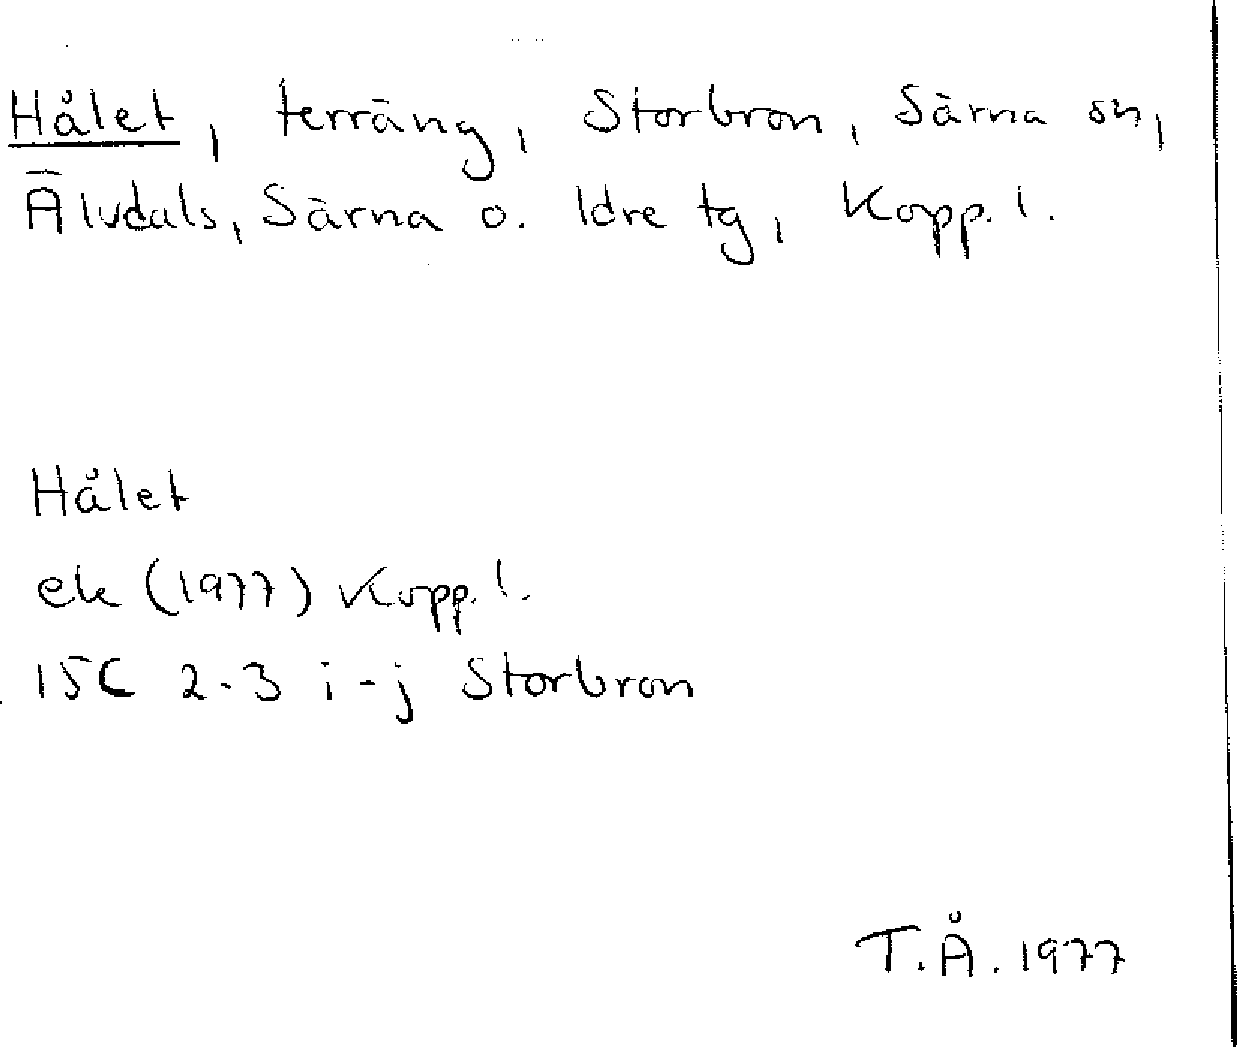 Hålet, terräng, Storbron, Särna sn,
Älvdals, Särna o. Idre tg, Kopp. l.
Hålet
ek (1977) Kopp. l.
15C 2-3 i-j Storbron
T.Å. 1977